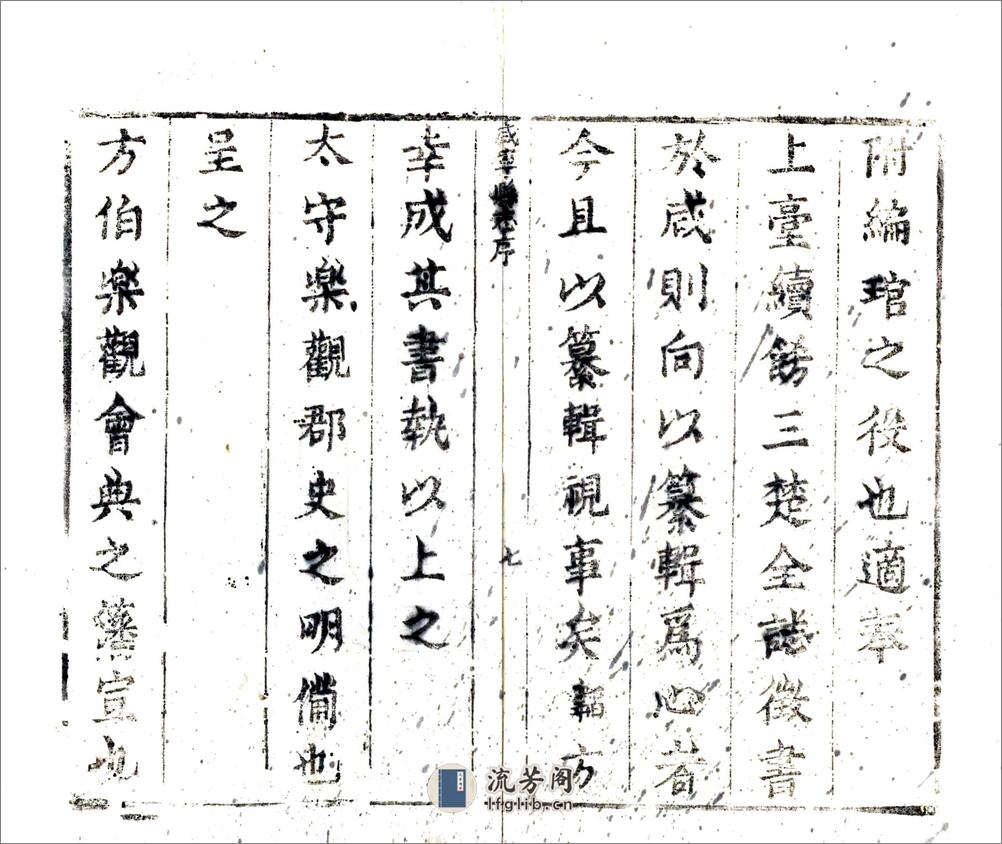 附綸琯之役也適奉
上臺續餝三楚全誌徵書
於咸則向以纂輯爲心者
今且以纂輯視事矣 方
咸寧縣志序
七
幸成其書執以上之
太守樂觀郡史之明備也
呈之
方伯樂觀會典之 宣也
流芳阁
lfglib.cn